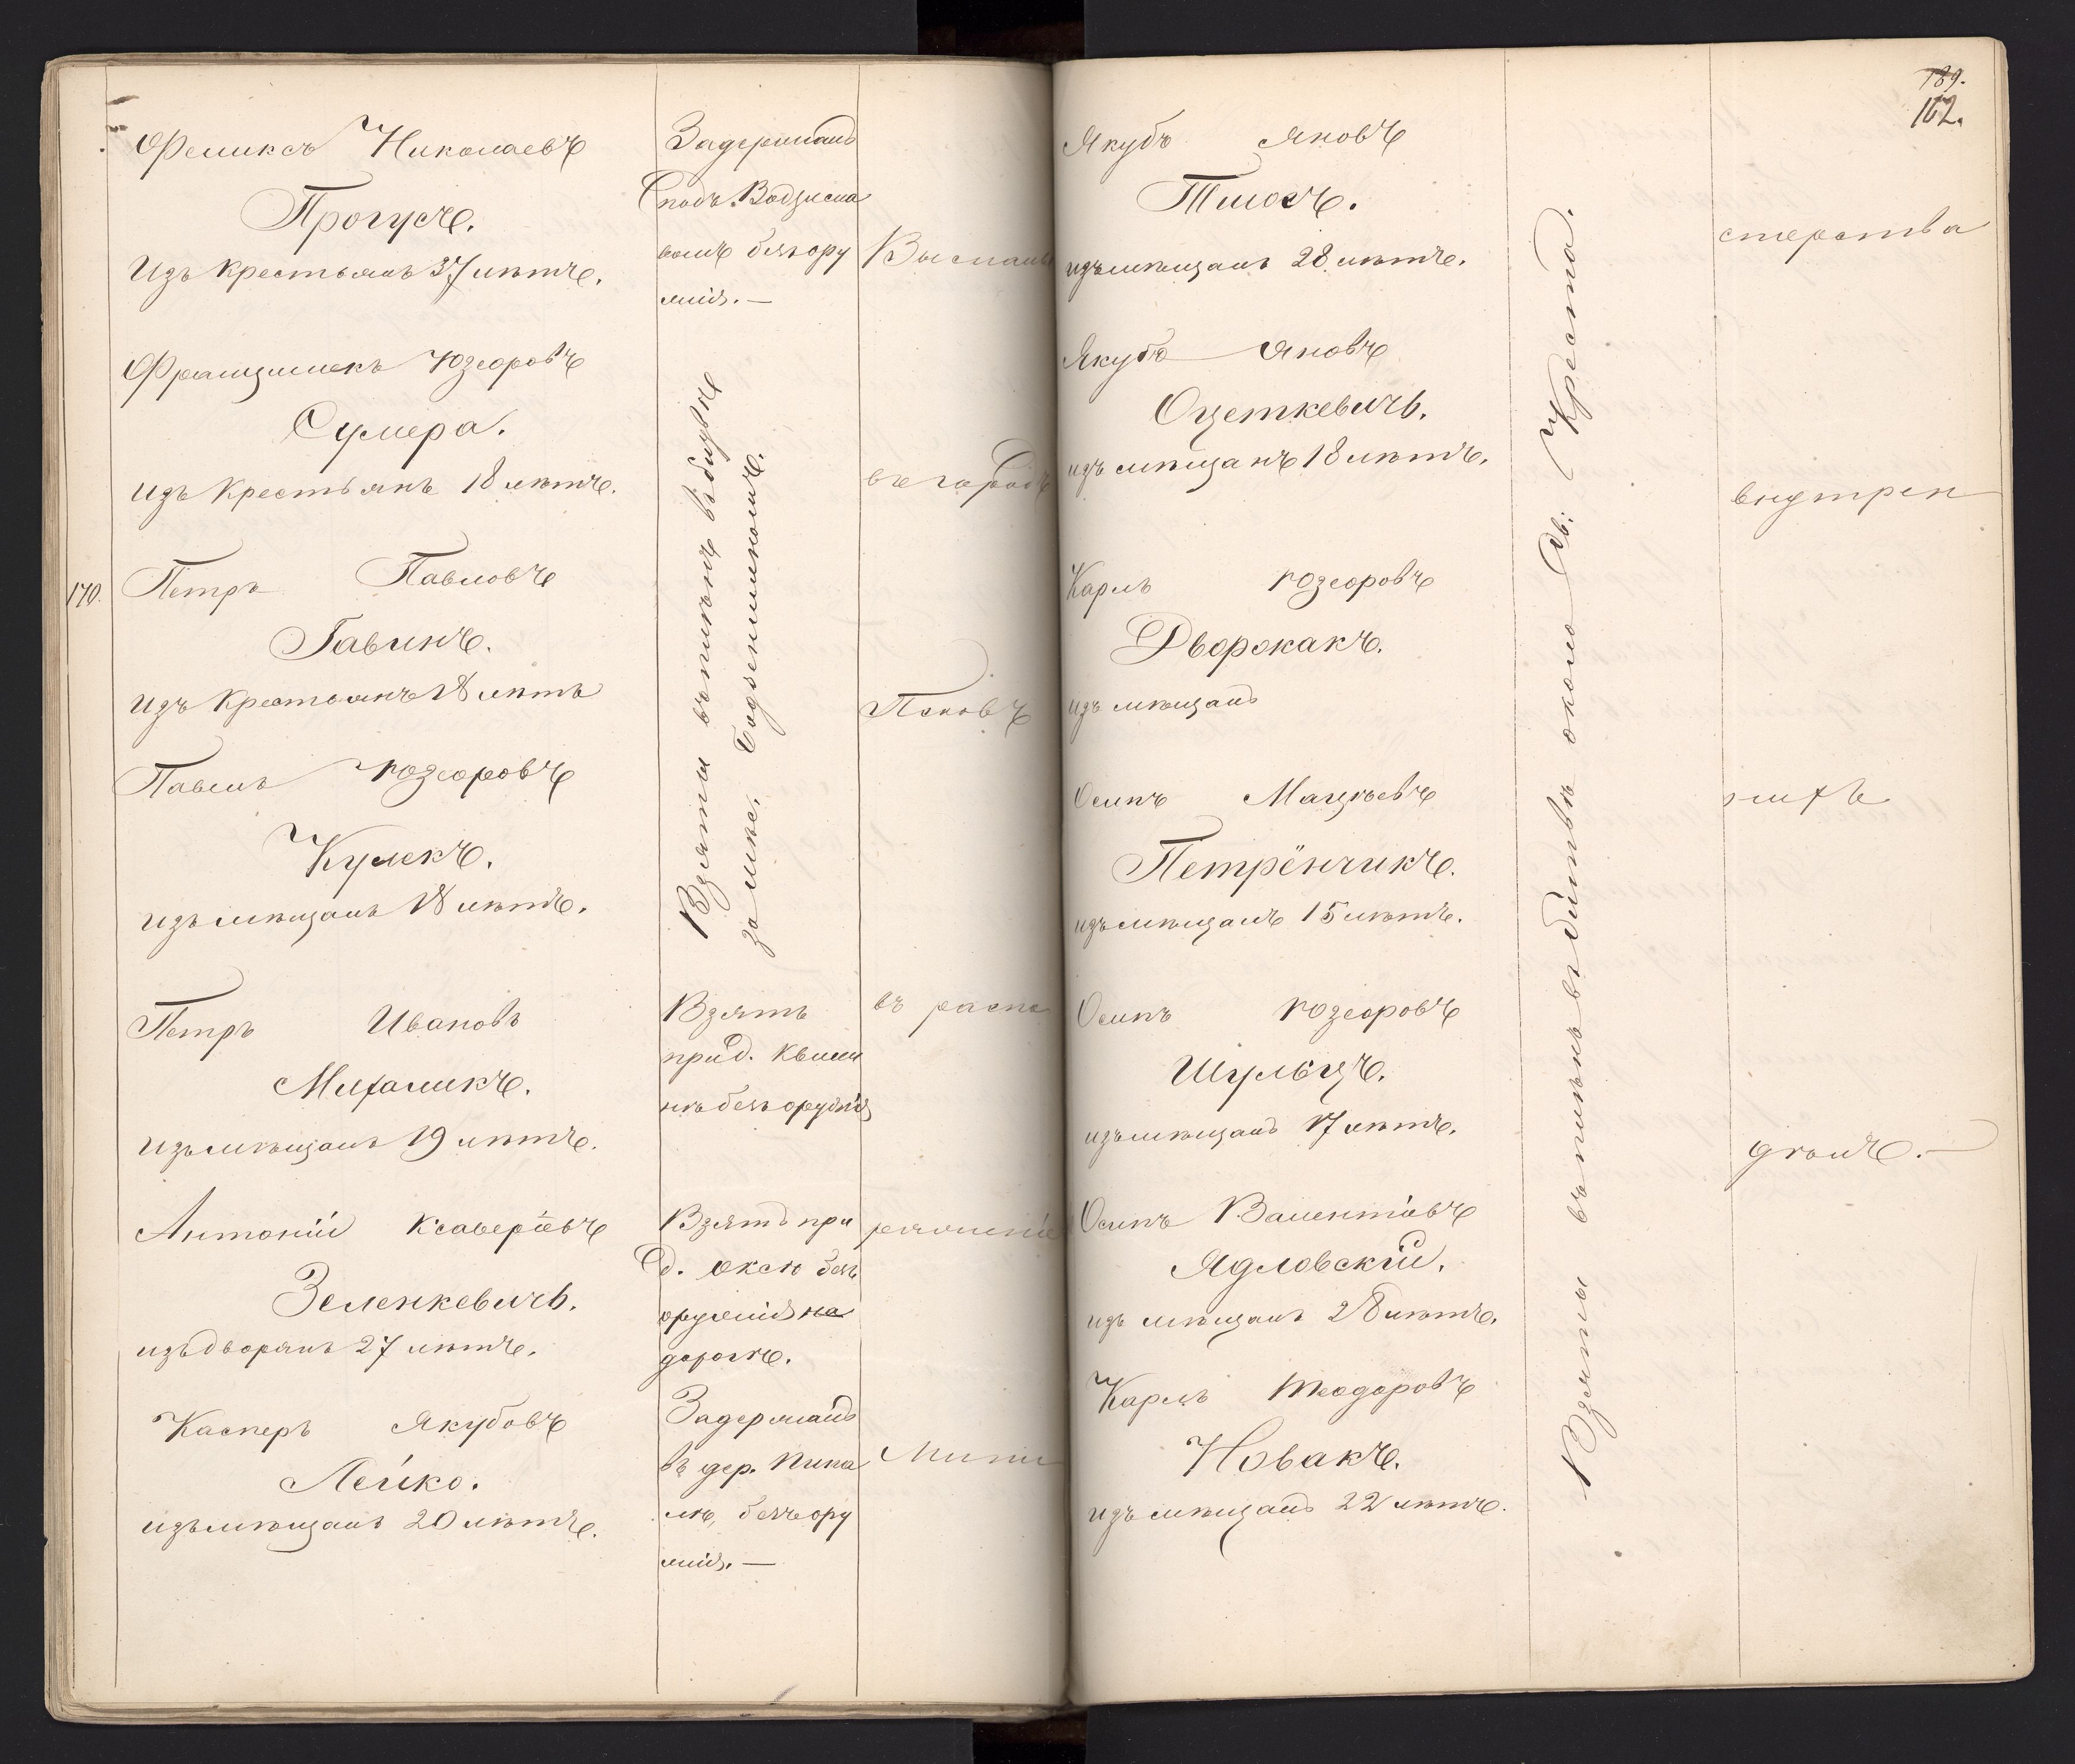 Феликсъ Николаевъ
Прогусъ.
Изъ Крестьянъ 37 лѣтъ.
Францишекъ Юзефовъ
Сумера.
изъ Крестьянъ 18 лѣтъ.
170.
Петръ Павловъ
Гавинъ.
изъ Крестьянъ 18 лѣтъ
Павелъ Юзефовъ
Кулекъ.
изъ мѣщанъ 18 лѣтъ.
Петръ Ивановъ
Михаликъ.
изъ мѣщанъ 19 лѣтъ.
Антоній Ксаверіевъ
Зеленкевичъ.
изъ дворянъ 27 лѣтъ.
Касперъ Якубовъ
Лейко.
изъ мѣщанъ 20 лѣтъ.
Задержанъ
подъ Водзисла
вомъ безъ ору
жія. —
Взяты въ плѣнъ въ битвѣ
за мѣс. Бодзентиномъ.
Взятъ
при д. Квили
нѣ безъ оружія
Взятъ при
д. Оксѣ безъ
оружія на
дорогѣ.
Задержанъ
въ дер. Пипа
лѣ, безъ ору
жія. —
Высланы
въ городъ
Псковъ
въ распо
ряженіе
Мини
189.
162.
Якубъ Яновъ
Тшосъ.
изъ мѣщанъ 28 лѣтъ.
Якубъ Яновъ
Оцеткевичъ.
изъ мѣщанъ 18 лѣтъ.
Карлъ Юзефовъ
Дворокакъ.
изъ мѣщанъ
Осипъ Мацѣевъ
Петрёнчикъ.
изъ мѣщанъ 15 лѣтъ.
Осипъ Юзефовъ
Шульцъ.
изъ мѣщанъ 17 лѣтъ.
Осипъ Валентіевъ
Ядловскій.
изъ мѣщанъ 28 лѣтъ.
Карлъ Теодоровъ
Новакъ.
изъ мѣщанъ 22 лѣтъ.
Взяты въ плѣнъ въ битвѣ около Св. Креста.
стерства
внутрен
нихъ
дѣлъ. —